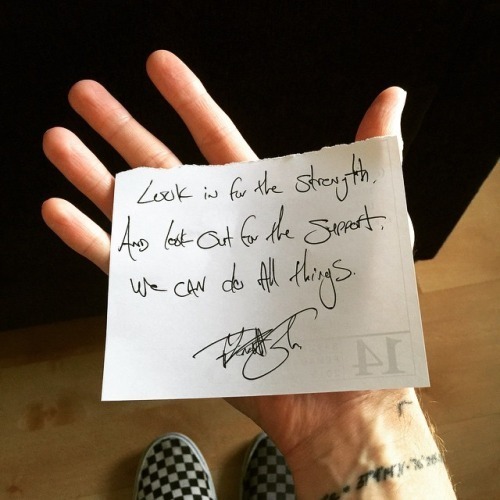 Look in for the strength.
AND look out for the support.
We CAN do All things.
14